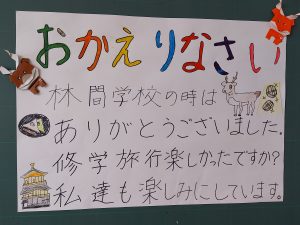 おかえりなさい
林間学校の時は
ありがとうございました。
修学旅行楽しかったですか?
私達も楽しみにしています。